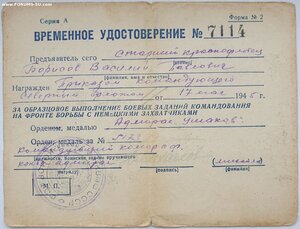 www.FORUMS-SU.com
Серия А
Форма № 2
ВРЕМЕННОЕ УДОСТОВЕРЕНИЕ № 7114
Предъявитель сего Старший краснофлотец
Борисов Василий Павлович
(фамилия, имя и отчество)
Награжден Приказом Командующего
Северным Флотом от 17 мая 1945 г.
ЗА ОБРАЗЦОВОЕ ВЫПОЛНЕНИЕ БОЕВЫХ ЗАДАНИЙ КОМАНДОВАНИЯ
НА ФРОНТЕ БОРЬБЫ С НЕМЕЦКИМИ ЗАХВАТЧИКАМИ
Орденом, медалью "Адмирал Ушаков"
Орден, медаль за №
контр-адмирал
(подпись)
(фамилия)
М. П.